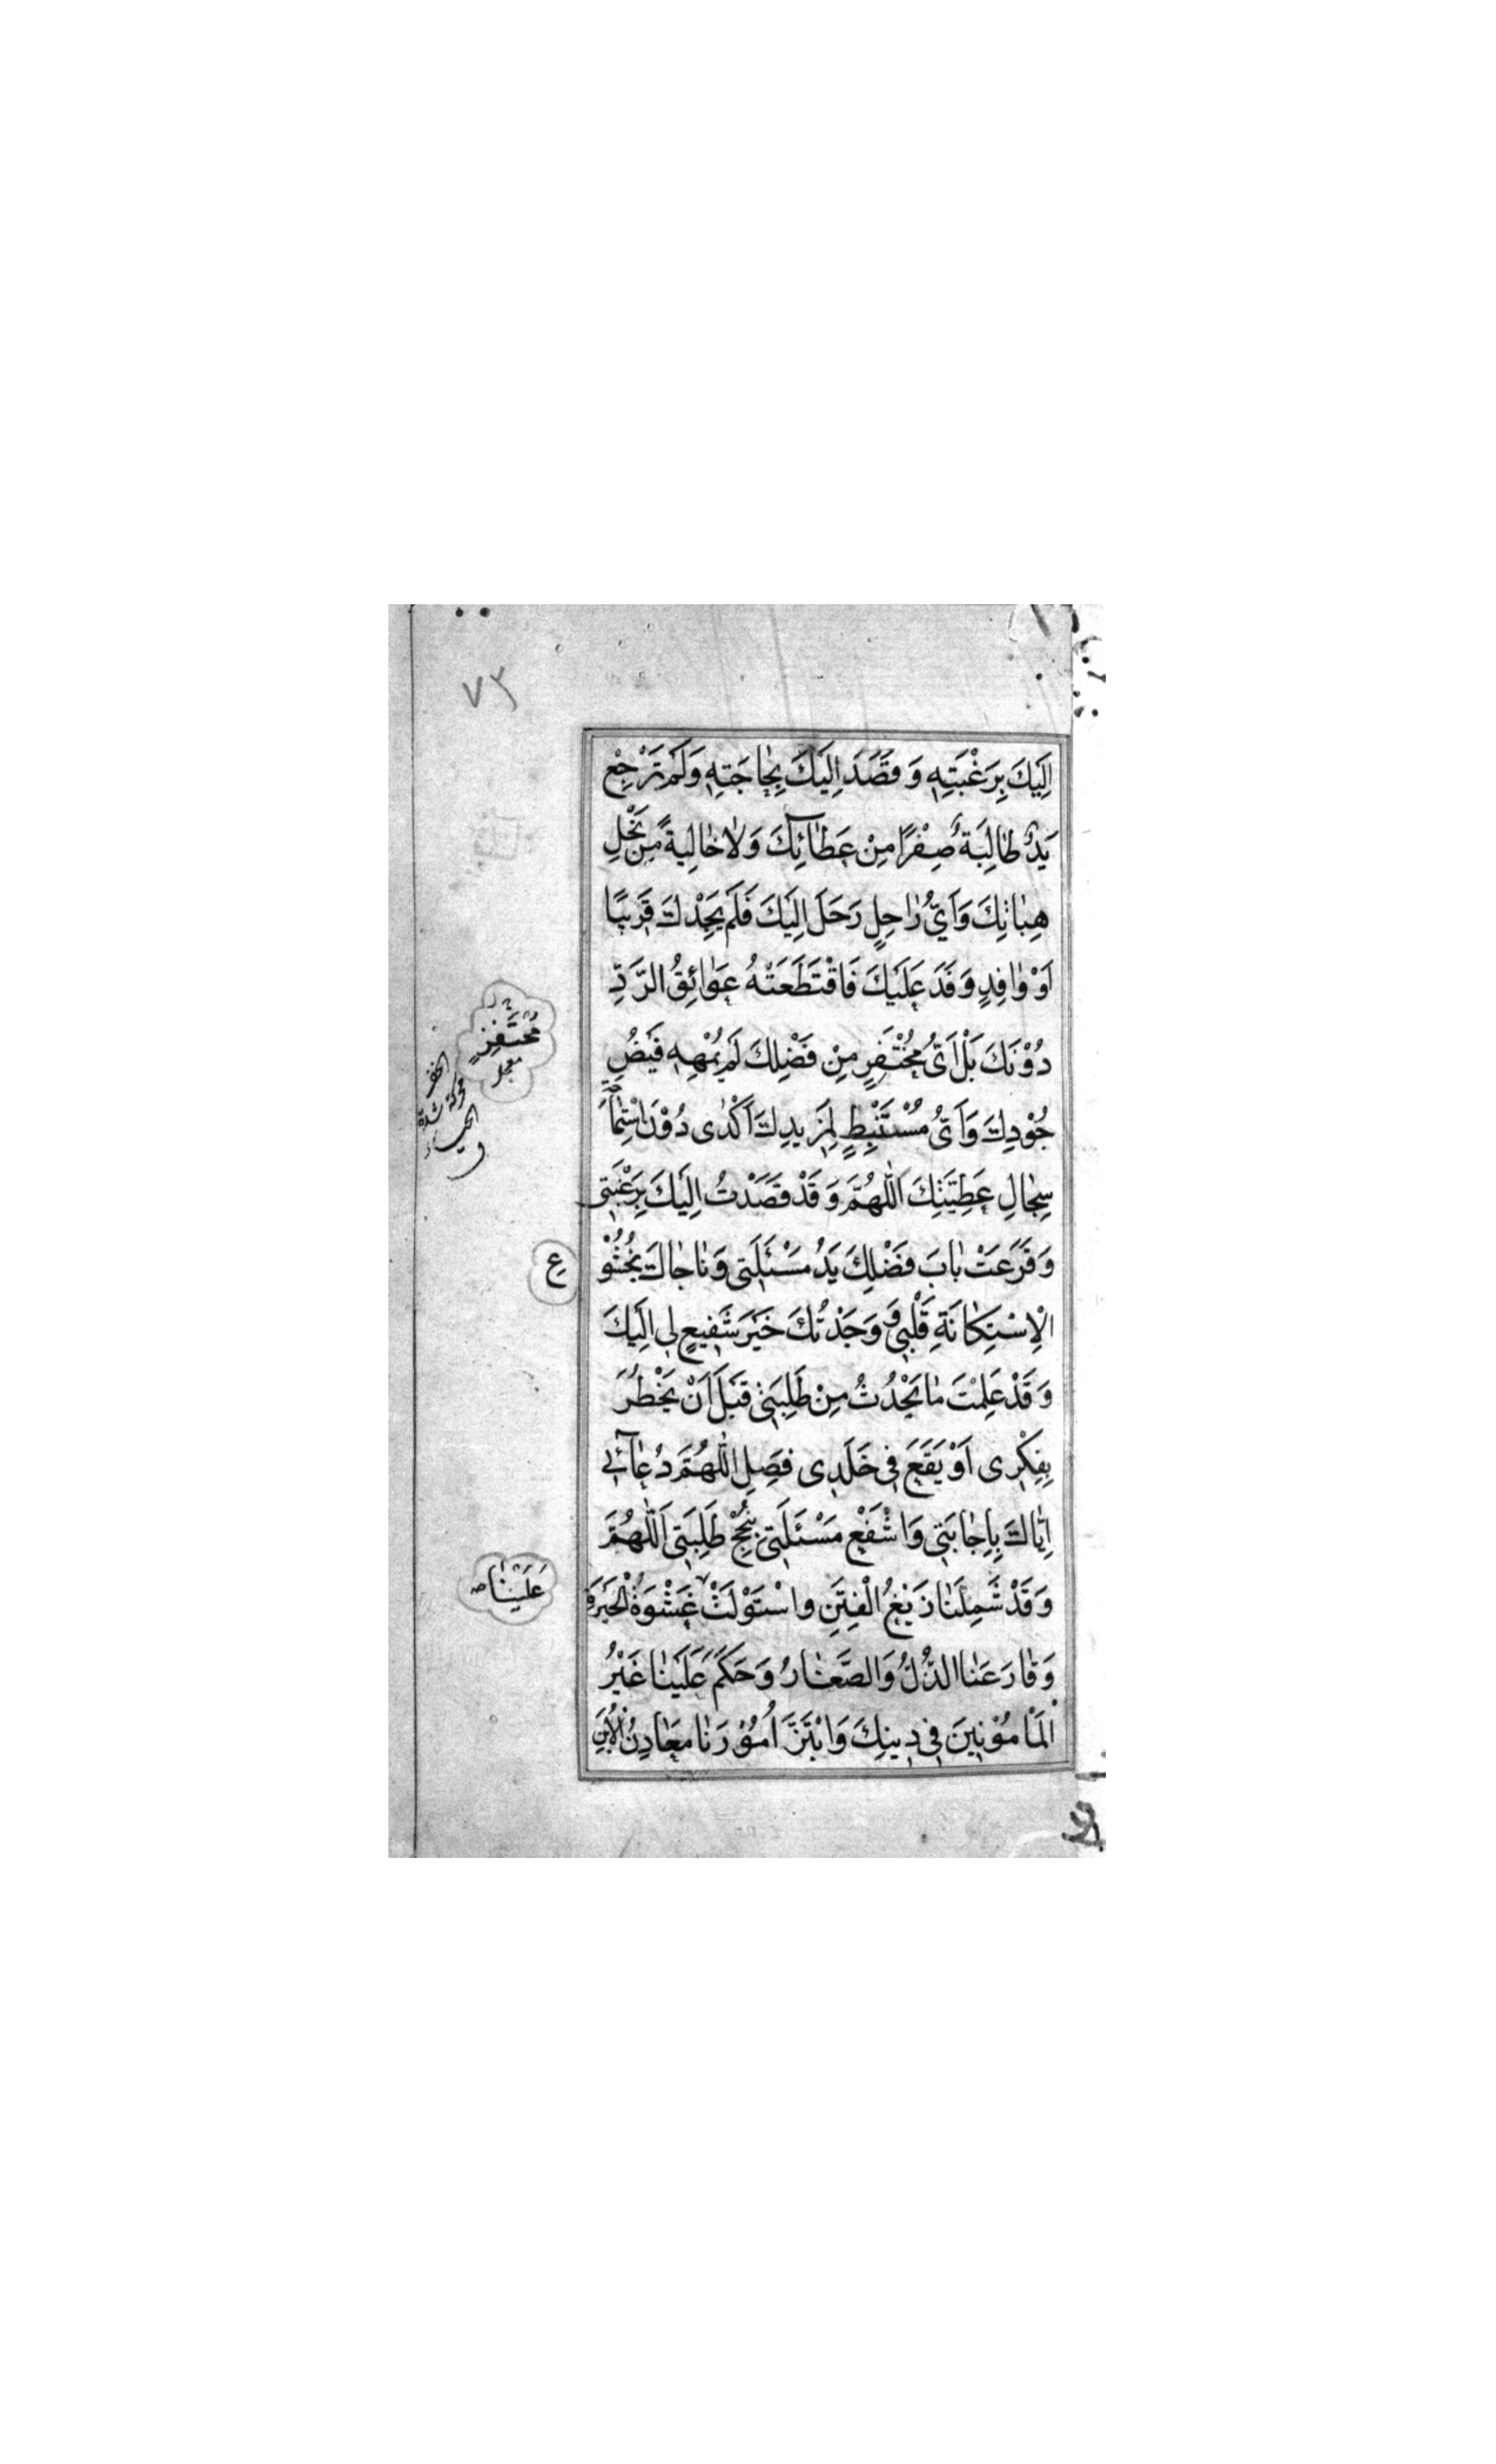 ٧٣
اِلَيْكَ بِرَغْبَتِهِ وَ قَصَدَ اِلَيْكَ بِحٰاجَتِهِ وَلَمْ تَرْجِعْ
يَدٌ طٰالِبَةٌ صِفْرًا مِنْ عَطٰآئِكَ وَلاٰ خٰالِيَةً مِنْ نِحَلِ
هِبٰاتِكَ وَاَيُّ رٰاحِلٍ رَحَلَ اِلَيْكَ فَلَمْ يَجِدْكَ قَرِيبًا
اَوْ وٰافِدٍ وَفَدَ عَلَيْكَ فَاقْتَطَعَتْهُ عَوٰائِقُ الرَّدِّ
دُوْنَكَ بَلْ اَيُّ مُحْتَفِرٍ مِنْ فَضْلِكَ لَمْ يُمْهِهِ فَيْضُ
جُوْدِكَ وَاَيُّ مُسْتَنْبِطٍ لِمَزِيدِكَ اَكْدٰى دُوْنَ اسْتِمٰاحَةِ
سِجٰالِ عَطِيَّتِكَ اَللّٰهُمَّ وَ قَدْ قَصَدْتُ اِلَيْكَ بِرَغْبَتِي
وَ قَرَعَتْ بٰابَ فَضْلِكَ يَدُ مَسْئَلَتِي وَ نٰاجٰاكَ بِخُشُوْ
عِ
الْاِسْتِكٰانَةِ قَلْبِي وَ وَجَدْتُكَ خَيْرَ شَفِيعٍ لِي اِلَيْكَ
وَ قَدْ عَلِمْتَ مٰا يَحْدُثُ مِنْ طَلِبَتِي قَبْلَ اَنْ يَخْطُرَ
بِفِكْرِي اَوْ يَقَعَ فِي خَلَدِي فَصِلِ اللّٰهُمَّ دُعٰآئِي
اِيّٰاكَ بِاِجٰابَتِي وَاشْفَعْ مَسْئَلَتِي بِنُجْحِ طَلِبَتِي اَللّٰهُمَّ
وَ قَدْ شَمِلَنٰا زَيْغُ الْفِتَنِ وَاسْتَوْلَتْ غَشْوَةُ الْحَيْرَةِ
عَلَيْنٰا صح
وَ قٰارَعَنٰا الذُّلُّ وَالصَّغٰارُ وَ حَكَمَ عَلَيْنٰا غَيْرُ
الْمَاْمُوْنِينَ فِي دِينِكَ وَابْتَزَّ اُمُوْرَنٰا مَعٰادِنُ الْاُبَنِ
مُحْتَفِزٍ